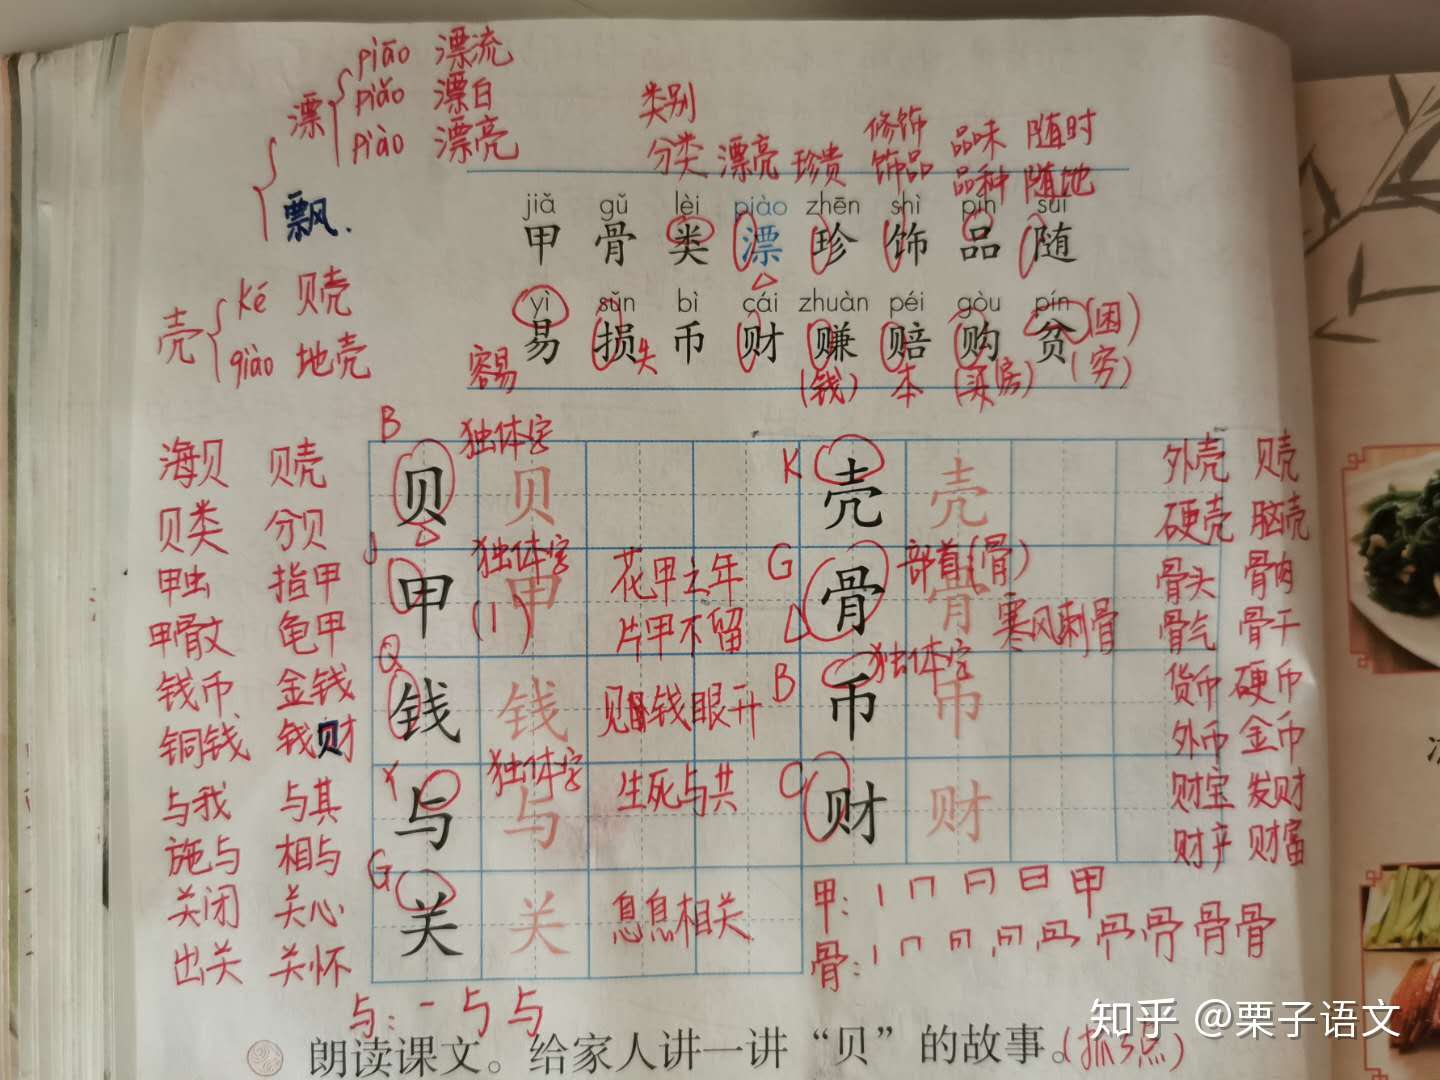 漂 piāo 漂流
piǎo 漂白
piào 漂亮
飘.
壳 ké 贝壳
qiào 地壳
类别 修饰 品味 随时
分类 漂亮 珍贵 饰品 品种 随地
jiǎ gǔ lèi piào zhēn shì pǐn suí
甲 骨 类 漂 珍 饰 品 随
yì sǔn bì cái zhuàn péi gòu pín
易 损 币 财 赚 赔 购 贫
容易 失 (钱) 本 (买房) (困)
(穷)
海贝 贝壳
贝类 分贝
甲虫 指甲
甲骨文 龟甲
钱币 金钱
铜钱 钱财
与我 与其
施与 相与
关闭 关心
出关 关怀
B 贝 独体字 贝
J 甲 独体字 甲 (丨) 花甲之年
片甲不留
Q 钱 钱 见钱眼开
Y 与 独体字 与 生死与共
G 关 关 息息相关
K 壳 壳
G 骨 部首(骨) 骨 寒风刺骨
B 币 独体字 币
C 财 财
外壳 贝壳
硬壳 脑壳
骨头 骨肉
骨气 骨干
货币 硬币
外币 金币
财宝 发财
财产 财富
甲: 丨 冂 日 甲
骨: 骨
与: 一 与 与
朗读课文。给家人讲一讲“贝”的故事。(抓3点)
知乎 @栗子语文